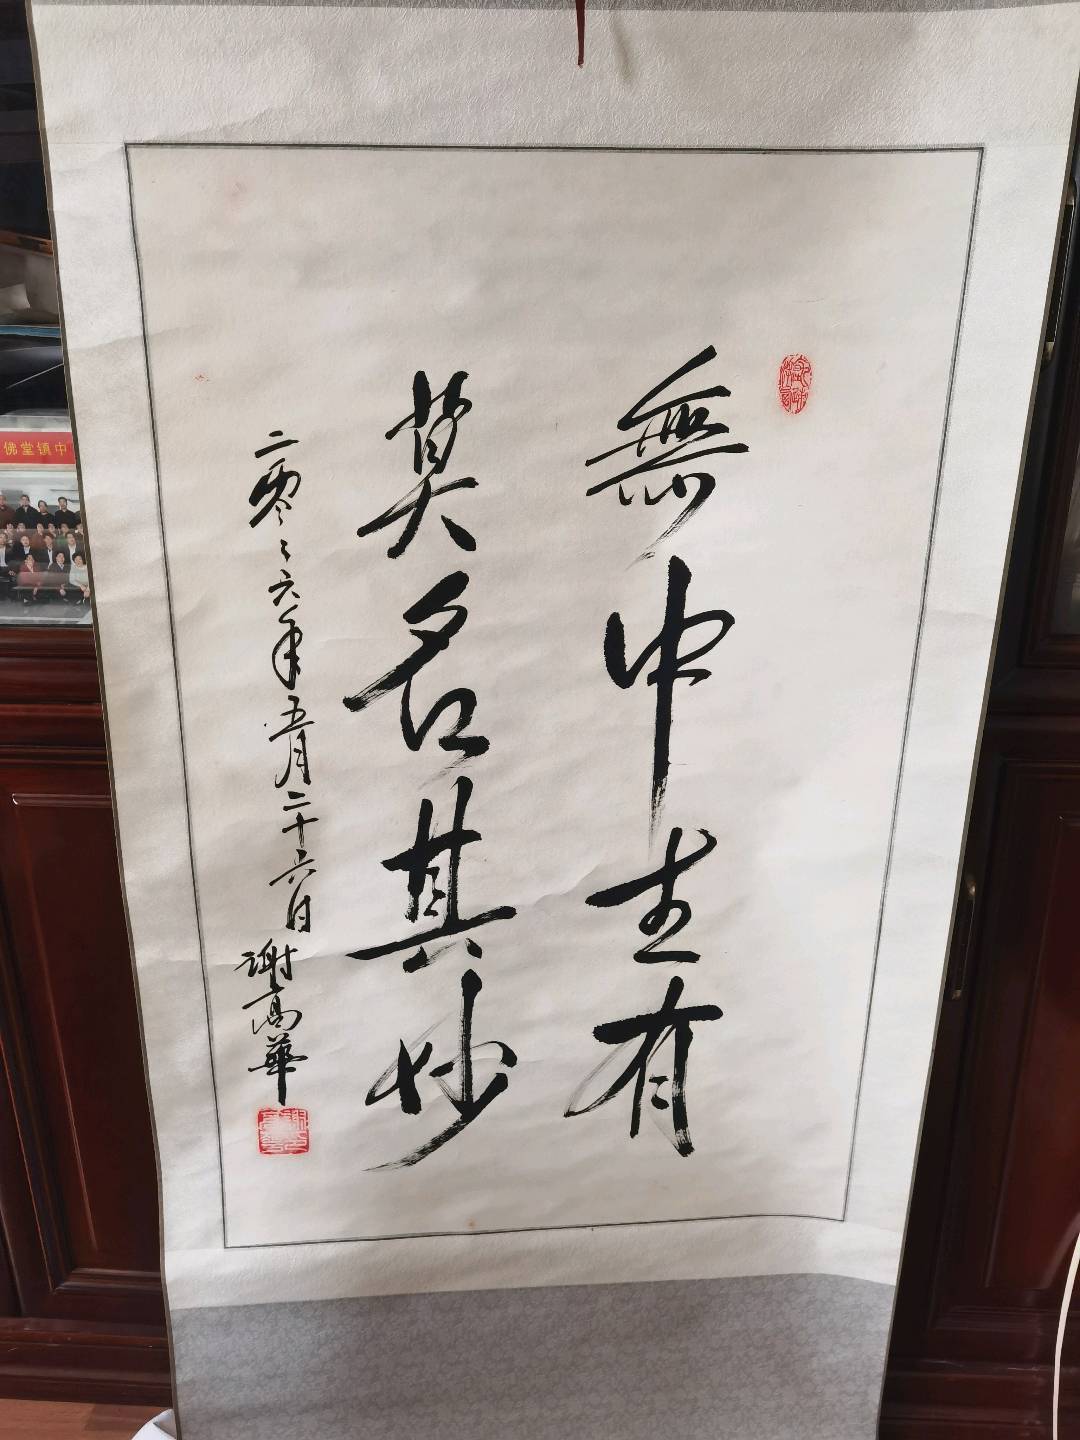 無中生有
莫名其妙
二零〻六年五月二十六日謝高華
佛堂镇中